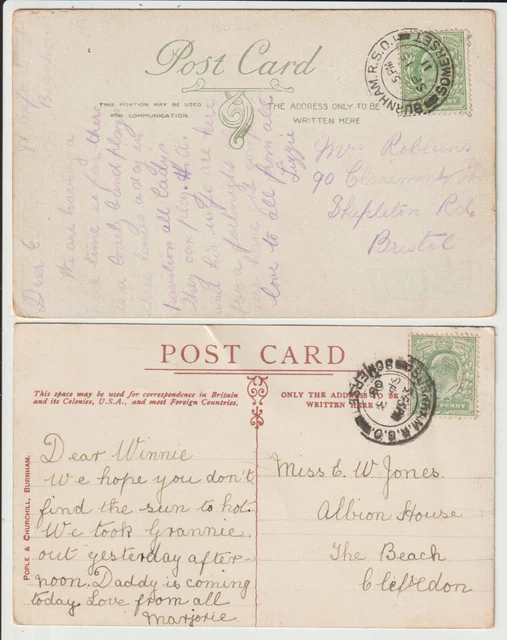 Post Card
THIS PORTION MAY BE USED
FOR COMMUNICATION.
THE ADDRESS ONLY TO BE
WRITTEN HERE
BURNHAM.R.S.O.
SOMERSET
5 PM
SP
11
Burnham
Dear E.
We are having a
time so far there
is a lovely band plays
three times a day in
pavilion all Ladys
they can play. A.
and his wife are here
for a fortnight
love to all from all
Lizzie
Mrs Robbins
90
Stapleton Rd.
Bristol
POST CARD
This space may be used for correspondence in Britain
and its Colonies, U.S.A., and most Foreign Countries.
ONLY THE ADDRESS TO BE
WRITTEN HERE
SOMERSET
09
PENNY
POPLE & CHURCHILL, BURNHAM.
Dear Winnie
We hope you don't
find the sun to hot.
We took Grannie
out yesterday after-
noon. Daddy is coming
today. Love from all
Marjorie
Miss E. W Jones.
Albion House
The Beach
Clevedon